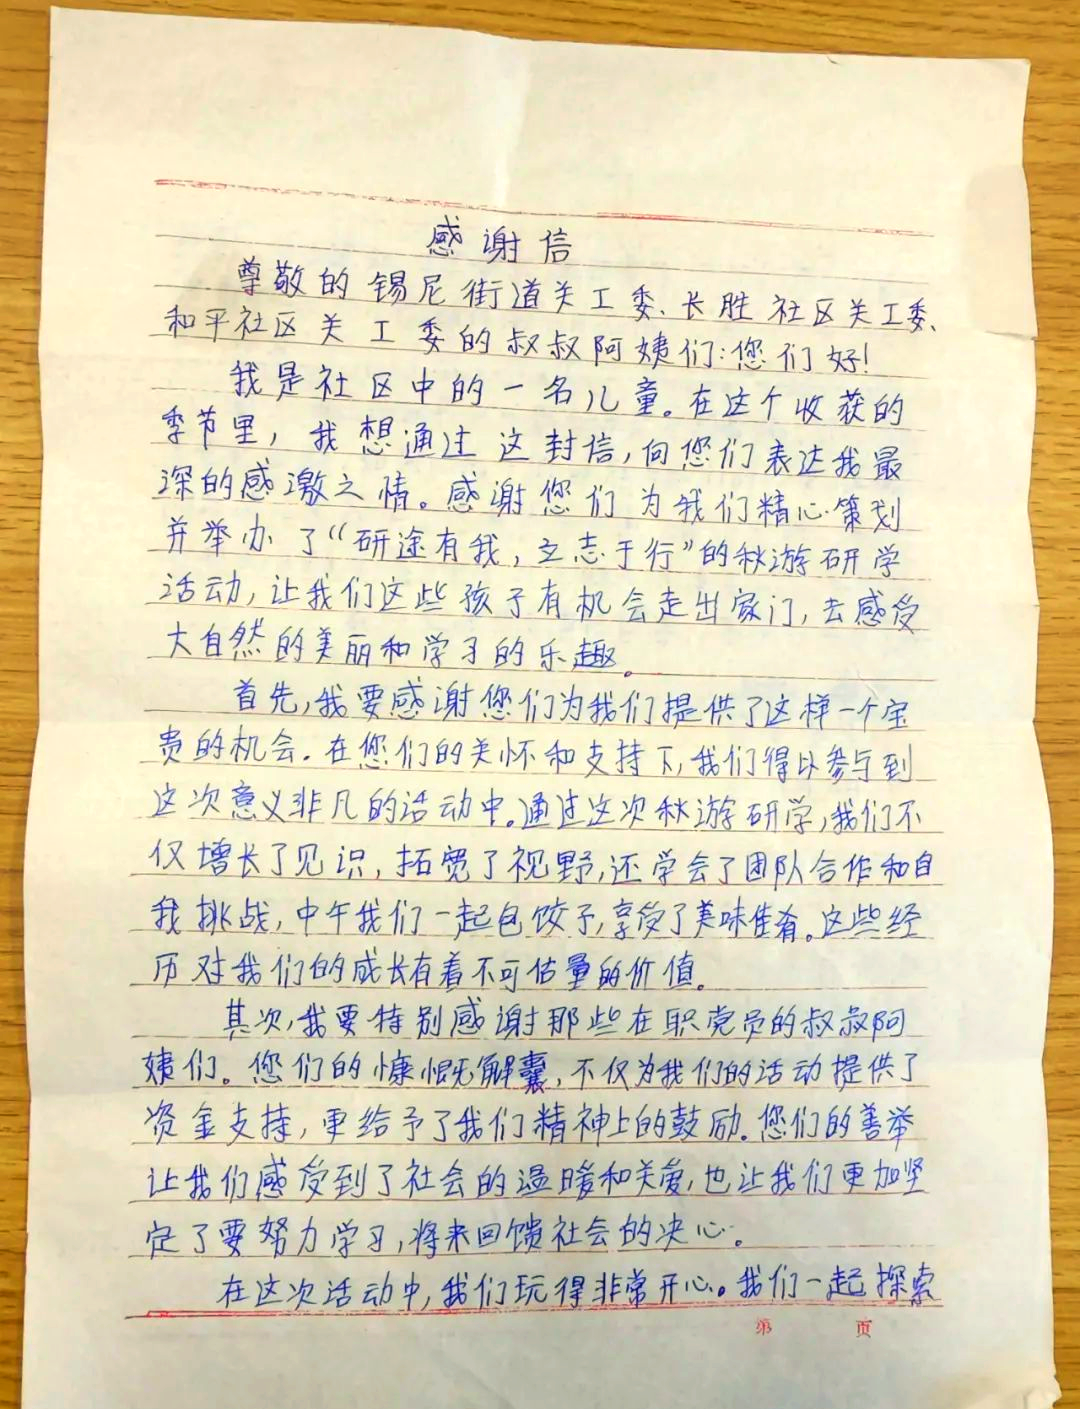 感谢信
尊敬的锡尼街道关工委、长胜社区关工委、
和平社区关工委的叔叔阿姨们:您们好!
我是社区中的一名儿童。在这个收获的
季节里,我想通过这封信,向您们表达我最
深的感激之情。感谢您们为我们精心策划
并举办了“研途有我,立志于行”的秋游研学
活动,让我们这些孩子有机会走出家门,去感受
大自然的美丽和学习的乐趣。
首先,我要感谢您们为我们提供了这样一个宝
贵的机会.在您们的关怀和支持下,我们得以参与到
这次意义非凡的活动中。通过这次秋游研学,我们不
仅增长了见识,拓宽了视野,还学会了团队合作和自
我挑战,中午我们一起包饺子,享受了美味佳肴。这些经
历对我们的成长有着不可估量的价值。
其次,我要特别感谢那些在职党员的叔叔阿
姨们。您们的慷慨解囊,不仅为我们的活动提供了
资金支持,更给予了我们精神上的鼓励。您们的善举
让我们感受到了社会的温暖和关爱,也让我们更加坚
定了要努力学习,将来回馈社会的决心。
在这次活动中,我们玩得非常开心。我们一起探索
第 页